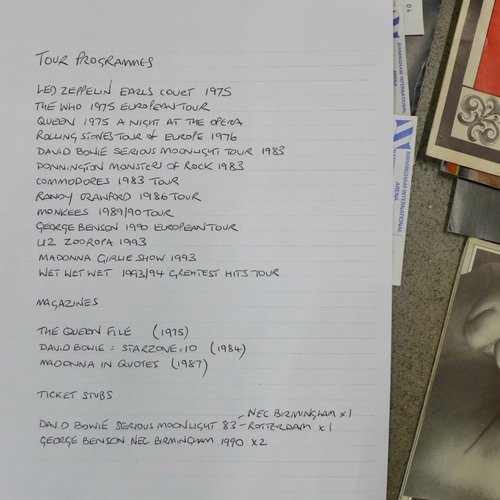 TOUR PROGRAMMES
LED ZEPPELIN EARLS COURT 1975
THE WHO 1975 EUROPEAN TOUR
QUEEN 1975 A NIGHT AT THE OPERA
ROLLING STONES TOUR of EUROPE 1976
DAVID BOWIE SERIOUS MOONLIGHT TOUR 1983
DONNINGTON MONSTERS OF ROCK 1983
COMMODORES 1983 TOUR
RANDY CRAWFORD 1986 TOUR
MONKEES 1989/90 TOUR
GEORGE BENSON 1990 EUROPEAN TOUR
U2 ZOOROPA 1993
MADONNA GIRLIE SHOW 1993
WET WET WET 1993/94 GREATEST HITS TOUR
MAGAZINES
THE QUEEN FILE (1975)
DAVID BOWIE : STARZONE:10 (1984)
MADONNA IN QUOTES (1987)
TICKET STUBS
DAVID BOWIE SERIOUS MOONLIGHT 83 - NEC BIRMINGHAM x 1
- ROTTERDAM x 1
GEORGE BENSON NEC BIRMINGHAM 1990 x 2
BIRMINGHAM INTERNATIONAL
BIRMINGHAM INTERNATIONAL
ARENA